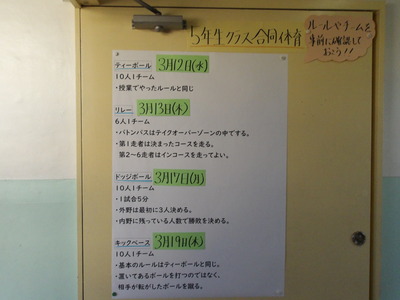 5年生クラス合同体育
ルールやチームを
事前に確認して
おこう!!
ティーボール 3月12日(水)
10人1チーム
・授業でやったルールと同じ
リレー 3月13日(木)
6人1チーム
・バトンパスはテイクオーバーゾーンの中でする。
・第1走者は決まったコースを走る。
第2~6走者はインコースを走ってよい。
ドッジボール 3月17日(月)
10人1チーム
・1試合5分
・外野は最初に3人決める。
・内野に残っている人数で勝敗を決める。
キックベース 3月19日(水)
10人1チーム
・基本のルールはティーボールと同じ。
・置いてあるボールを打つのではなく、
相手が転がしたボールを蹴る。